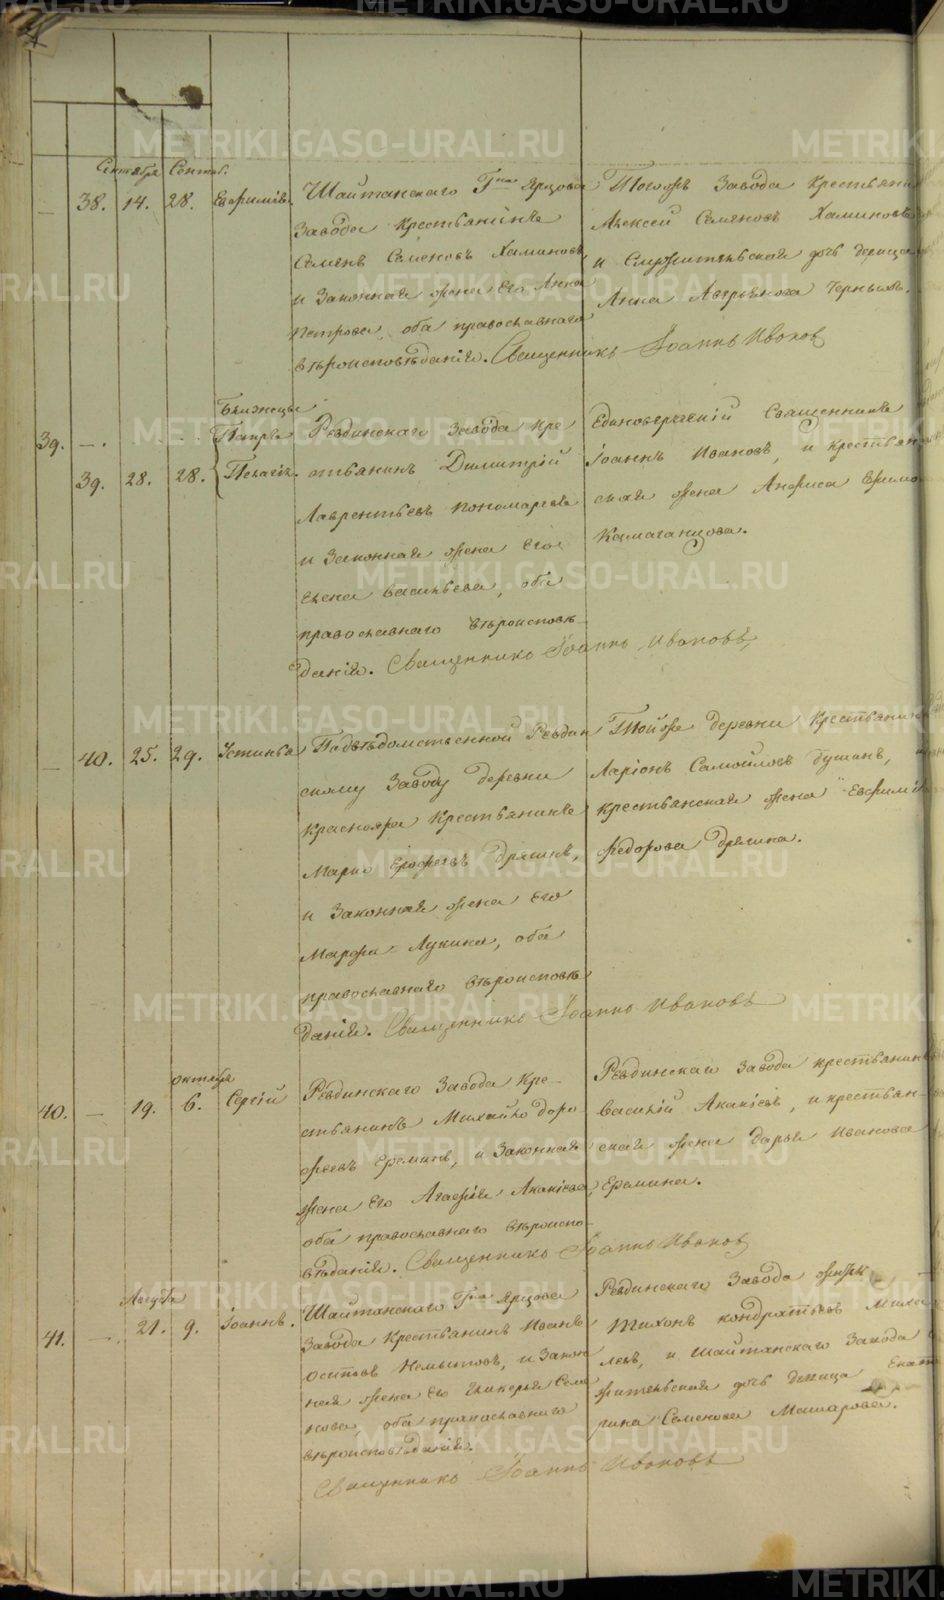 METRIKI.GASO-URAL.RU
Сентября Сентяб.
38. 14. 28. Евфимія.
Шайтанскаго Гна Ярцова
Завода крестьянинъ
Семенъ Семеновъ Хаминовъ,
и Законная жена Его Анна
Петрова, оба православнаго
вѣроисповѣданія. Священникъ Іоаннъ Ивановъ
Тогожъ Завода Крестьяни
Алексей Семеновъ Хаминовъ
и дочь девица
Анна Аверьянова Черныхъ.
Близнецы
39. Петръ
39. 28. 28. Пелагія.
Ревдинскаго Завода Кре
стьянинъ Димитрій
Лаврентьевъ Пономаревъ
и Законная жена Его
Елена Васильева, оба
православнаго вѣроисповѣ
данія. Священникъ Іоаннъ Ивановъ
Единоверческій Священникъ
Іоаннъ Ивановъ, и крестьян
ская жена Анфиса Ефимо
Камаганцова.
40. 25. 29. Устинья
Подвѣдомственной Ревдин
скому Заводу деревни
Краснояра Крестьянинъ
Марко Ерофеевъ Дрягинъ,
и Законная жена Его
Марфа Лукина, оба
православнаго вѣроисповѣ
данія. Священникъ Іоаннъ Ивановъ
Тойже деревни Крестьянинъ
Ларіонъ Самойловъ Бушинъ,
крестьянская жена Евфимія
Федорова Дрягина.
октября
40. — 19. 6. Сергій
Ревдинскаго Завода Кре-
стьянинъ Михайло Доро
феевъ Ереминъ, и Законная
жена Его Агафія Акакіева,
оба православнаго вѣроиспо-
вѣданія. Священникъ Іоаннъ Ивановъ
Ревдинскаго Завода крестьянинъ
Василій Акакіевъ, и крестьян-
ская жена Дарья Иванова
Еремина.
Августа
41. — 21. 9. Іоаннъ.
Шайтанскаго Гна Ярцова
Завода Крестьянинъ Иванъ
Осиповъ Немытовъ, и Закон
ная жена Его Гликерья Семе
нова, оба православнаго
вѣроисповѣданія.
Священникъ Іоаннъ Ивановъ
Ревдинскаго Завода житель
Тихонъ Кондратьевъ
левъ, и Шайтанскаго Завода
жительская дочь девица Екате
рина Семенова Машарова.